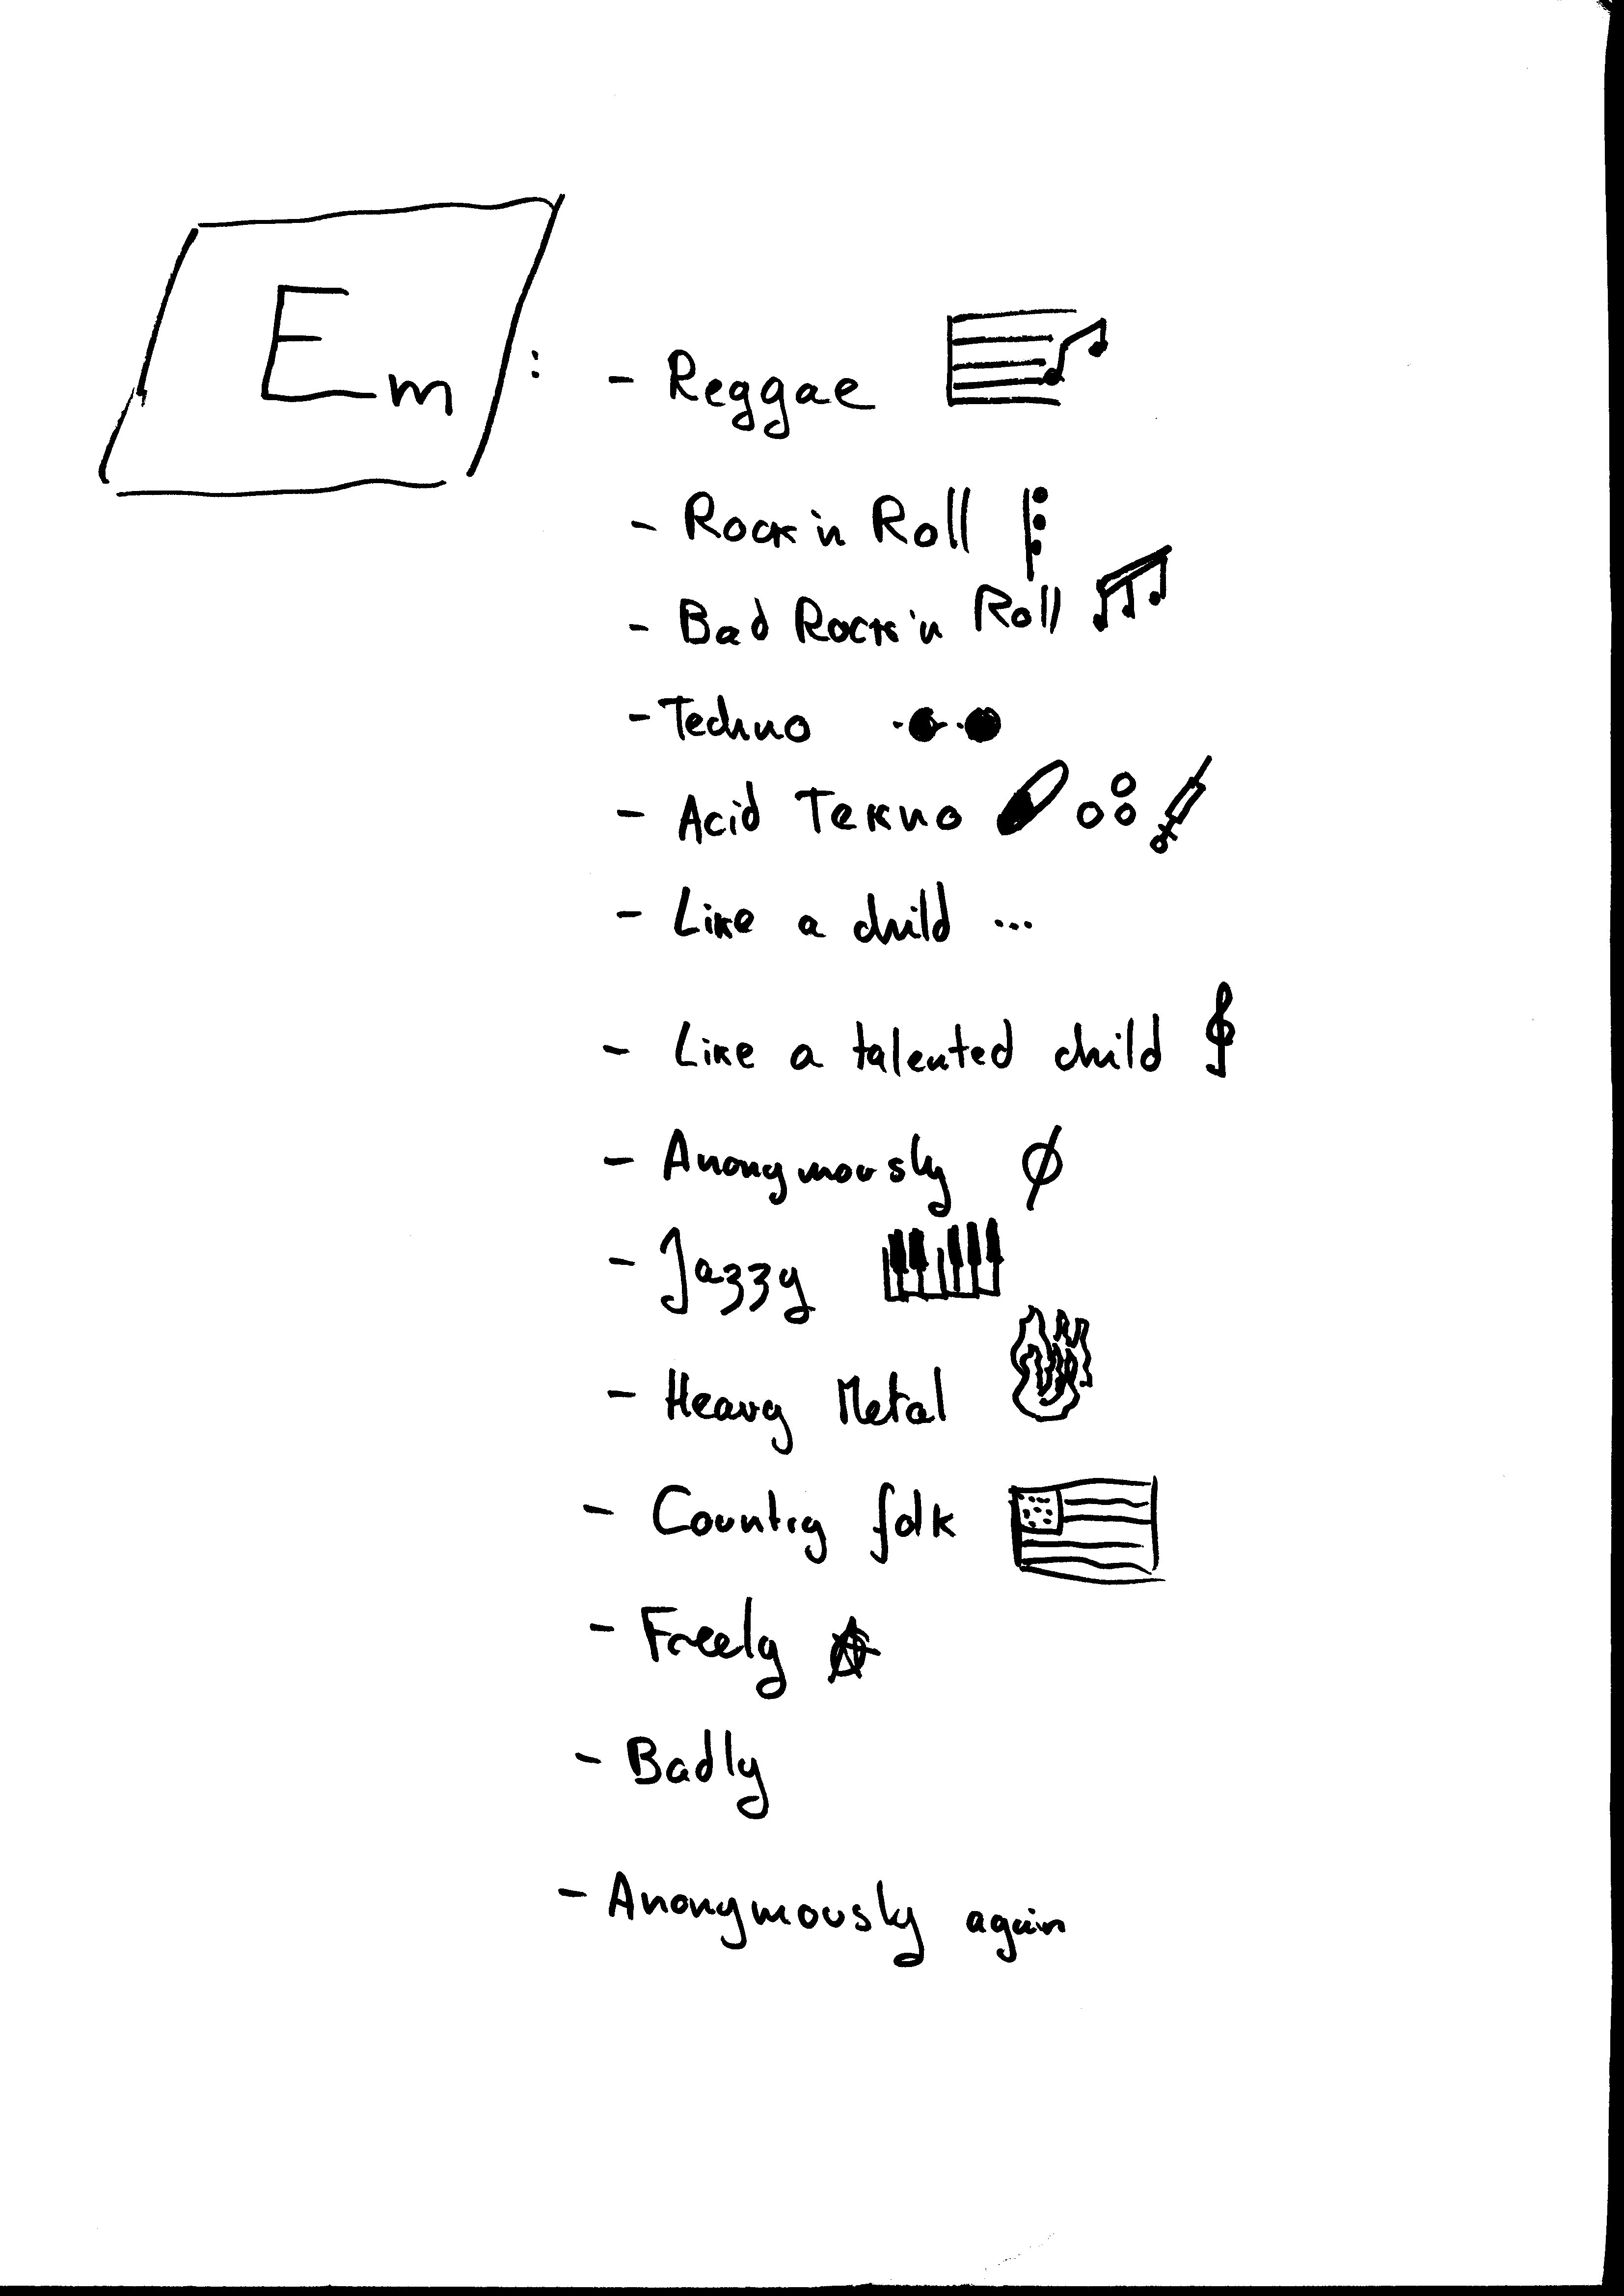 Em :
- Reggae
- Rock'n Roll
- Bad Rock'n Roll
- Techno
- Acid Tekno
- Like a child ...
- Like a talented child
- Anonymously
- Jazzy
- Heavy Metal
- Country folk
- Freely
- Badly
- Anonymously again